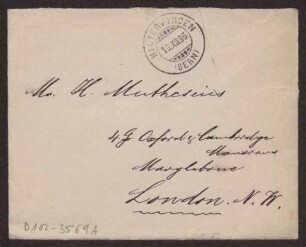 HILTERFINGEN
13.XII.96
(BERN)
Mr. H. Muthesius
4J Oxford & Cambridge
Mansions
Marylebone
London. N. W.
D 102-3569 A